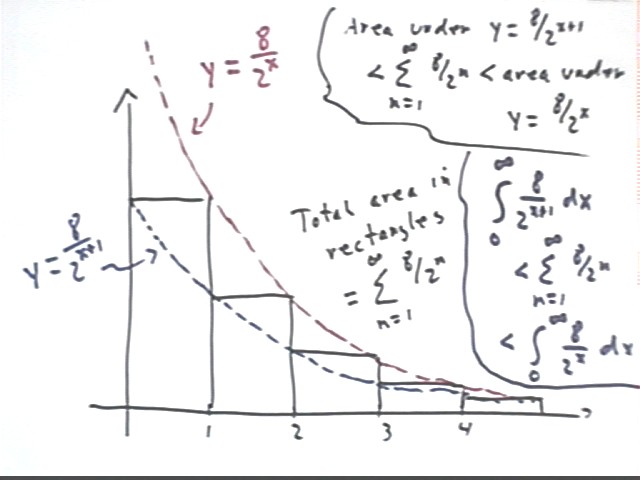 y = 8/2^x
Area under y = 8/2^x+1
< ∞ Σ n=1 8/2^n < area under
y = 8/2^x
y = 8/2^x+1
Total area in
rectangles
= ∞ Σ n=1 8/2^n
∞ ∫ 0 8/2^x+1 dx
< ∞ Σ n=1 8/2^n
< ∞ ∫ 0 8/2^x dx
1 2 3 4